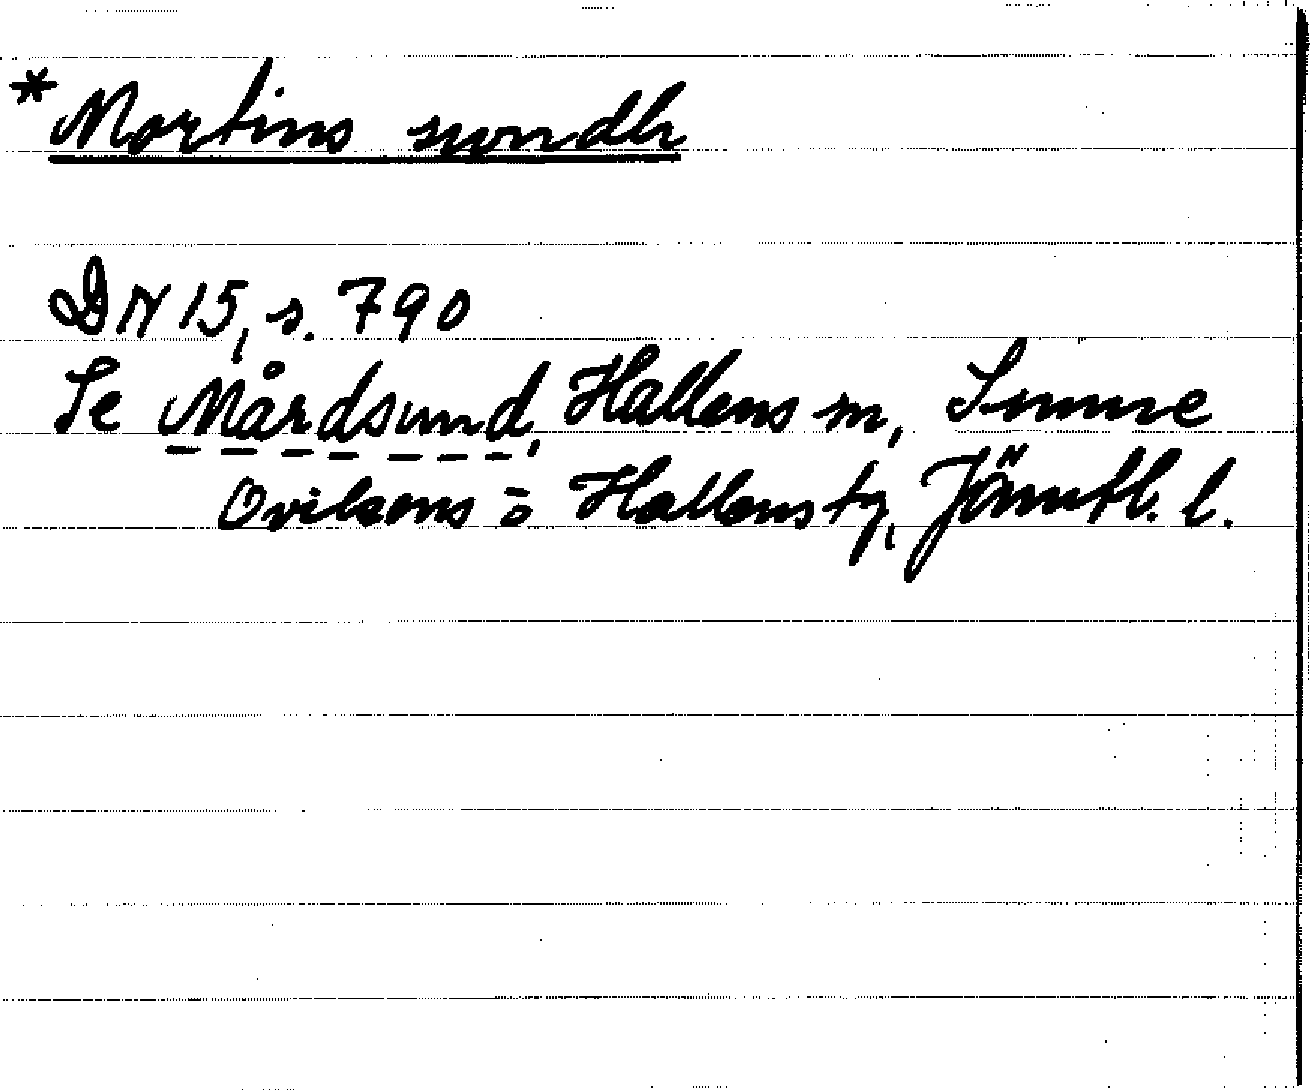 *Mortins swndh
DN 15, s. 790
Se Mårdsund, Hallens sn, Sunne
Ovikens ō Hallens tg, Jämtl. l.